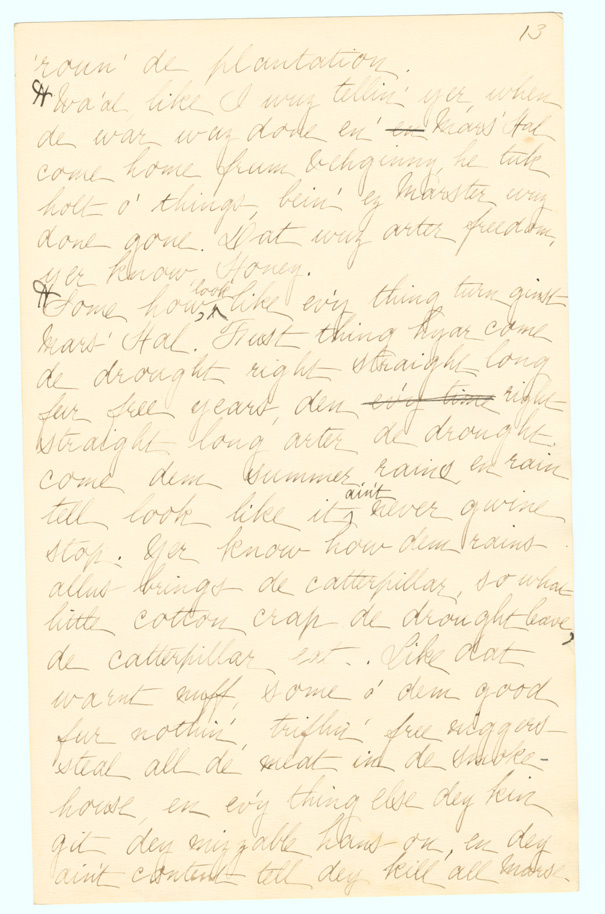 13
'roun' de plantation.
Wa'al, like I wuz tellin' yer, when
de war wuz done en' en Mars' Hal
come home frum Vehginny, he tuk
holt o' things, bein' ez Marster wuz
done gone. Dat wuz arter freedom,
yer know, Honey.
Some how, look like ev'y thing turn ginst
Mars' Hal. Fust thing hyar come
de drought right straight long
fur free years, den ev'y time right
straight long arter de drought.
come dem summer rains, en rain
tell look like it ain't never gwine
stop. Yer know how dem rains
allus brings de catterpillar, so what
little cotton crap de drought leave,
de catterpillar eat. Like dat
warnt nuff, some o' dem good
fur nothin', triflin' free niggers
steal all de meat in de smoke-
house, en ev'y thing else dey kin
git dey mizzable hans on, en dey
ain't content tell dey kill all Marse